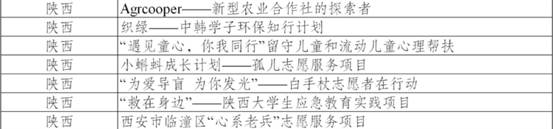 陕西 Agrcooper——新型农业合作社的探索者
陕西 织绿——中韩学子环保知行计划
陕西 “遇见童心，你我同行”留守儿童和流动儿童心理帮扶
陕西 小蝌蚪成长计划——孤儿志愿服务项目
陕西 “为爱导盲 为你发光”——白手杖志愿者在行动
陕西 “救在身边”——陕西大学生应急教育实践项目
陕西 西安市临潼区“心系老兵”志愿服务项目